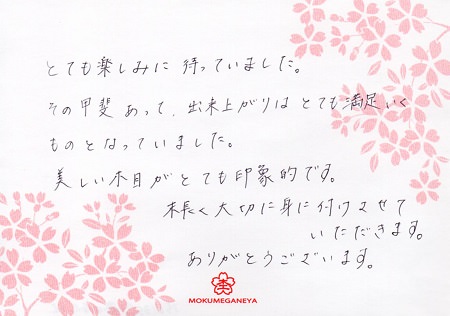 とても楽しみに待っていました。
その甲斐あって、出来上がりはとても満足いく
ものとなっていました。
美しい木目がとても印象的です。
末長く大切に身に付けさせて
いただきます。
ありがとうございます。
MOKUMEGANEYA